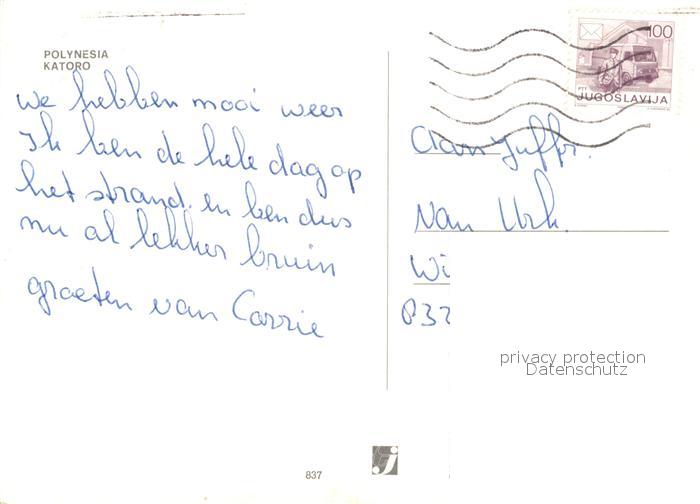 POLYNESIA
KATORO
we hebben mooi weer
Ik ben de hele dag op
het strand. en ben dus
nu al lekker bruin
groeten van Carrie
100
PTT
JUGOSLAVIJA
Aan Juffr.
van Urk.
Wi
837
privacy protection
Datenschutz